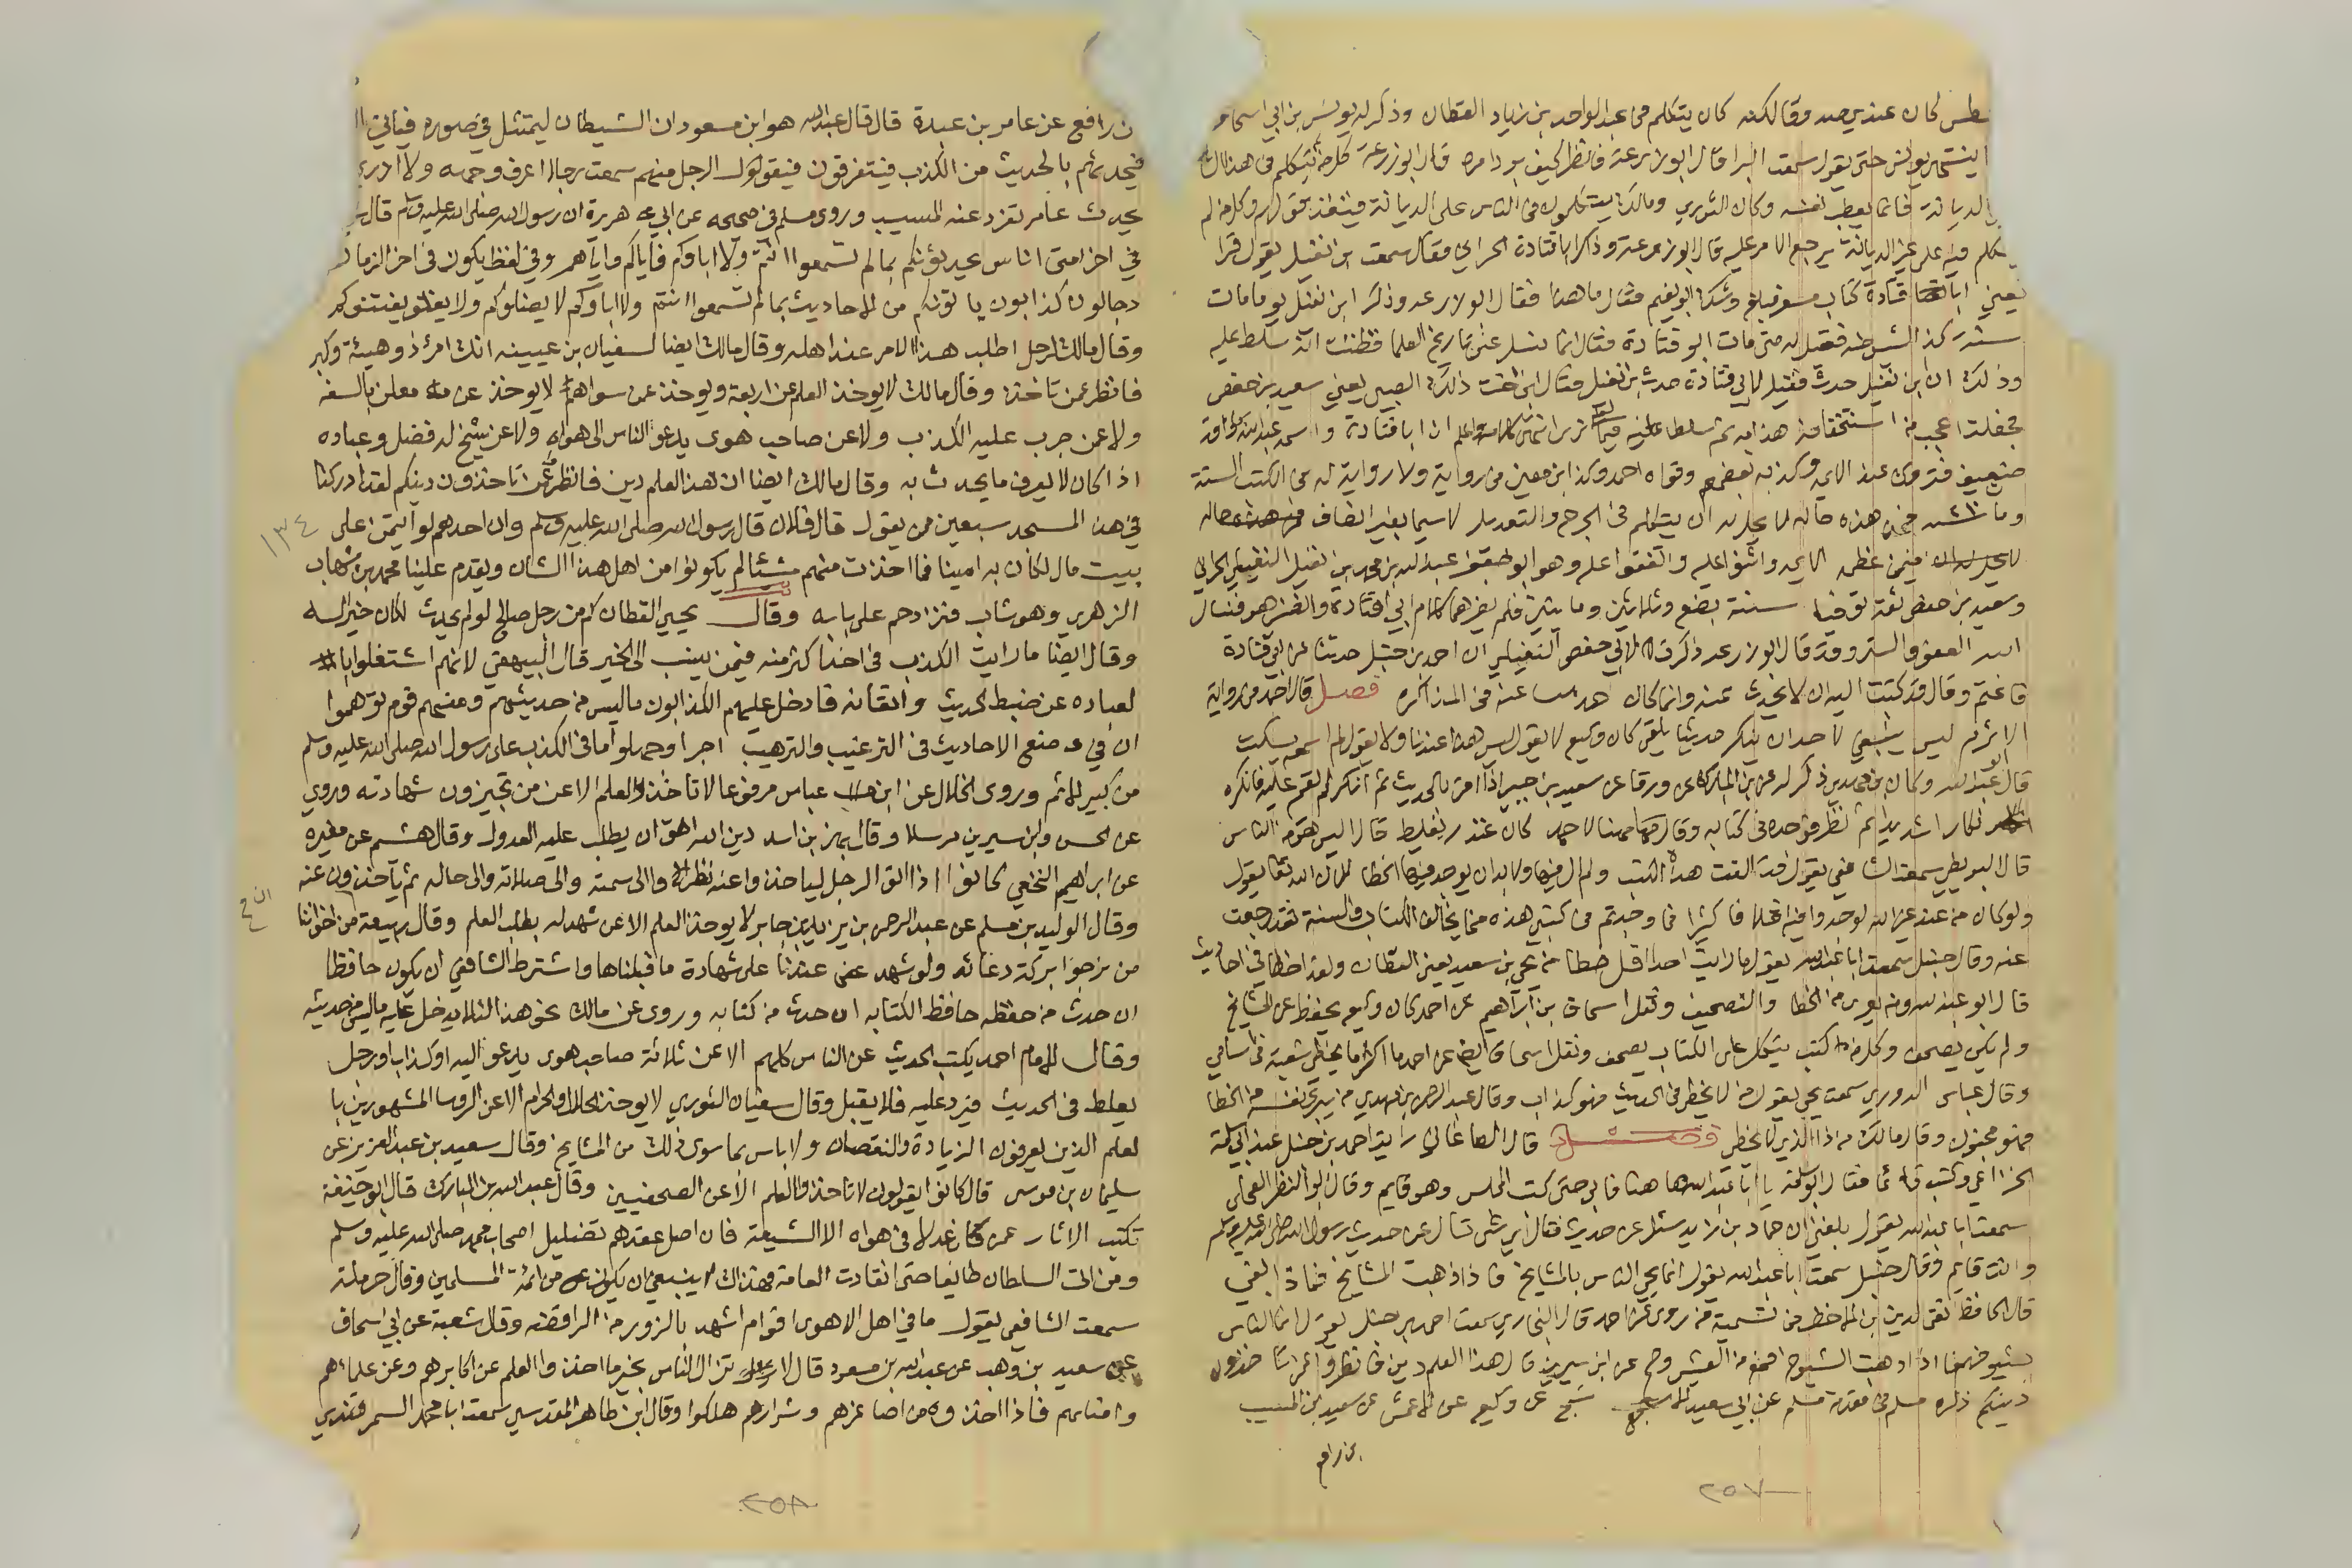 كان عندي صد وقال لكنه كان يتكلم في عبد الواحد بن زياد القطان وذكر له يونس بن ابي اسحاق
حتى يقول سمعت البرا قال ابو زرعة فانظر كيف يرد امره قال ابو زرعة كل من يتكلم في هذا الشان
الديانة فانما يعطب نفسه وكان الثوري ومالك يتكلمون في الناس على الديانة فينفذ قولهم وكل من لم
يتكلم فيه على غير الديانة يرجع الامر عليه قال ابو زرعة وذكر ابا قتادة الحراني فقال سمعت ابن نفيل يقول قرا
يعني ابا قتادة كتاب مسعر فبلغ وشك ابو نعيم فقال ما هذا فقال ابو زرعة وذكر ابن نفيل يوما مات
سنة كذا فقيل له متى مات ابو قتادة فقال انما تسل عن تاريخ العلما فظننت انه سلط عليه
وذلك ان ابن نفيل حدث فقيل لابي قتادة حدث ابن نفيل فقال ابن اخت ذلك الصبي يعني سعيد بن حفص
فجعلت اعجب من استخفافه هذا به ثم سلط عليه واعلم ان ابا قتادة واسمه عبد الله بن واقد
ضعيف متروك عند الايمه وكذبه بعضهم وقواه احمد وكذا ابن معين في رواية ولا رواية له في الكتب الستة
فمن هذه حاله لا يحل له ان يتكلم في الجرح والتعديل لا سيما بغير انصاف
فيمن عظمه الايمه واثنوا عليه واتفقوا عليه وهو ابو جعفر عبد الله بن محمد بن نفيل النفيلي الحراني
وسعيد بن حفص ثقة توفيا سنة بضع وثلاثين ومايتين فلم يضرهما كلام ابي قتادة وانضر هو فنسال
الله العفو والستر وقد قال ابو زرعه ذكرت لابي جعفر النفيلي ان احمد بن حنبل حدثنا عن ابي قتادة
فاغتم وقال قد كتبت اليه ان لا يحدث عنه وانما كان عنه في المذاكره فصل قال احمد في رواية
الاثرم ليس ينبغي لاحد ان ينكر حديثا يلقى كان وكيع لا يقول ليس هذا عندنا ولا يقول لم اسمع يسكت
قال ابو عبد الله وكان ابن مهدي ذكر له عن ابن المبارك عن ورقا عن سعيد بن جبير اذا اقر بالحديث ثم انكر لم يقم عليه فانكره
انكارا شديدا ثم نظر فوجده في كتابه وقال مهنا لاحمد كان غندر يغلط قال اليس هو من الناس
قال البويطي سمعت الشافعي يقول قد الفت هذه الكتب ولم ال فيها ولا بد ان يوجد فيها الخطا لان الله تعالى يقول
ولو كان من عند غير الله لوجدوا فيه اختلافا كثيرا فما وجدتم في كتبي هذه مما يخالف الكتاب والسنة فقد رجعت
عنه وقال حنبل سمعت ابا عبد الله يقول ما رايت احدا اقل خطا من يحيى بن سعيد يعني القطان ولقد اخطا في احاديث
قال ابو عبد الله ومن يعرى من الخطا والتصحيف ونقل اسحاق بن ابراهيم عن احمد كان وكيع يحفظ عن المشايخ
ولم يكن يصحف وكل من كتب يتكل على الكتاب يصحف ونقل اسحاق ايضا عن احمد ما اكثر ما يخطي شعبة في اسامي
وقال عباس الدوري سمعت يحيى يقول من لا يخطي في الحديث فهو كذاب وقال عبد الرحمن بن مهدي من يبري نفسه من الخطا
فهو مجنون وقال مالك من ذا الذي لا يخطي فصل قال الصاغاني رايت احمد بن حنبل عند ابي سلمة
الخزاعي وكتب قائما فقال ابو سلمة يا ابا عبد الله ها هنا فابى حتى كتب المجلس وهو قايم وقال ابو النظر العجلي
سمعت ابا عبد الله يقول بلغني ان حماد بن زيد سئل عن حديث فقال اي شي تسال عن حديث رسول الله صلى الله عليه وسلم
وانت قايم وقال حنبل سمعت ابا عبد الله يقول انما يحيى الناس بالمشايخ فاذا ذهبت المشايخ فماذا بقي
قال الحافظ تقي الدين بن الاخضر في تسمية من روى عن احمد قال البخاري سمعت احمد بن حنبل يقول انما الناس
بشيوخهم فاذا ذهبت الشيوخ فمع من العيش وصح عن ابن سيرين قال هذا العلم دين فانظروا عمن تاخذون
دينكم ذكره مسلم في مقدمة مسلم عن ابي سعيد الاشج عن وكيع عن الاعمش عن المسيب
بن رافع
٢٥٧
بن رافع عن عامر بن عبدة قال قال عبد الله هو ابن مسعود ان الشيطان ليتمثل في صوره فياتي
فيحدثهم بالحديث من الكذب فيتفرقون فيقول الرجل منهم سمعت رجلا اعرف وجهه ولا ادري
يحدث عامر تفرد عنه المسيب وروى مسلم في صحيحه عن ابي هريرة ان رسول الله صلى الله عليه وسلم قال
في اخر امتي اناس يحدثونكم بما لم تسمعوا انتم ولا اباوكم فاياكم واياهم وفي لفظ يكون في اخر الزمان
دجالون كذابون ياتونكم من الاحاديث بما لم تسمعوا انتم ولا اباوكم لا يضلوكم ولا يفتنوكم
وقال مالك لرجل اطلب هذا الامر عند اهله وقال مالك ايضا لسفيان بن عيينه انك امرؤ ذو هيئة وكبر
فانظر عمن تاخذ وقال مالك لا يوخذ العلم عن اربعة ويوخذ عمن سواهم لا يوخذ عن معلن بالسفه
ولا عمن جرب عليه الكذب ولا عن صاحب هوى يدعو الناس الى هواه ولا عن شيخ له فضل وعباده
اذا كان لا يعرف ما يحدث به وقال مالك ايضا ان هذا العلم دين فانظروا عمن تاخذون دينكم لقد ادركنا
في هذا المسجد سبعين ممن يقول قال فلان قال رسول الله صلى الله عليه وسلم وان احدهم لو ائتمن على
١٣٤
بيت مال لكان به امينا فما اخذت منهم شيئا لم يكونوا من اهل هذا الشان ويقدم علينا محمد بن شهاب
الزهري وهو شاب فنزدحم على بابه وقال يحيى القطان كم من رجل صالح لو لم يحدث لكان خيرا له
وقال ايضا ما رايت الكذب في احد اكثر منه فيمن ينسب الى الخير قال البيهقي لانهم اشتغلوا با
لعباده عن ضبط الحديث واتقانه فادخل عليهم الكذابون ما ليس من حديثهم ومنهم قوم توهموا
ان في صنع الاحاديث في الترغيب والترهيب اجرا وجهلوا ما في الكذب على رسول الله صلى الله عليه وسلم
من كبير الاثم وروى الخلال عن ابن عباس مرفوعا لا تاخذوا العلم الا عن من تجيزون شهادته وروي
عن الحسن وابن سيرين مرسلا وقال بهز بن اسد دين الله احق ان يطلب عليه العدول وقال هشيم عن مغيره
عن ابراهيم النخعي كانوا اذا اتوا الرجل لياخذوا عنه نظروا الى سمته والى صلاته والى حاله ثم ياخذون عنه
وقال الوليد بن مسلم عن عبد الرحمن بن يزيد بن جابر لا يوخذ العلم الا عن شهد له بطلب العلم وقال ربيعة من اخواننا
من نرجوا بركة دعائه ولو شهد عندنا على شهادة ما قبلناها واشترط الشافعي ان يكون حافظا
ان حدث من حفظه حافظا لكتابه ان حدث من كتابه وروى عن مالك نحو هذا لئلا يدخل عليه ما ليس من حديثه
وقال الامام احمد يكتب الحديث عن الناس كلهم الا عن ثلاثة صاحب هوى يدعو اليه او كذاب او رجل
يغلط في الحديث فيرد عليه فلا يقبل وقال سفيان الثوري لا يوخذ الحلال والحرام الا عن الروسا المشهورين با
لعلم الذين يعرفون الزيادة والنقصان ولا باس بما سوى ذلك من المشايخ وقال سعيد بن عبد العزيز عن
سليمان بن موسى قال كانوا يقولون لا تاخذوا العلم الا عن الصحفيين وقال عبد الله بن المبارك قال ابو حنيفة
تكتب الاثار عمن كان عدلا في هواه الا الشيعة فان اصل عقدهم تضليل اصحاب محمد صلى الله عليه وسلم
ومن اتى السلطان طائعا حتى انقادت العامة فهذاك لا ينبغي ان يكون من ائمة المسلمين وقال حرملة
سمعت الشافعي يقول ما في اهل الاهوى اقوام اشهد بالزور من الرافضه وقال شعبة عن ابي اسحاق
عن سعيد بن وهب عن عبد الله بن مسعود قال لا تزال الناس بخير ما اخذوا العلم عن اكابرهم وعن علمائهم
وامنائهم فاذا اخذوه من اصاغرهم وشرارهم هلكوا وقال ابن طاهر المقدسي سمعت ابا محمد السمرقندي
٢٥٨